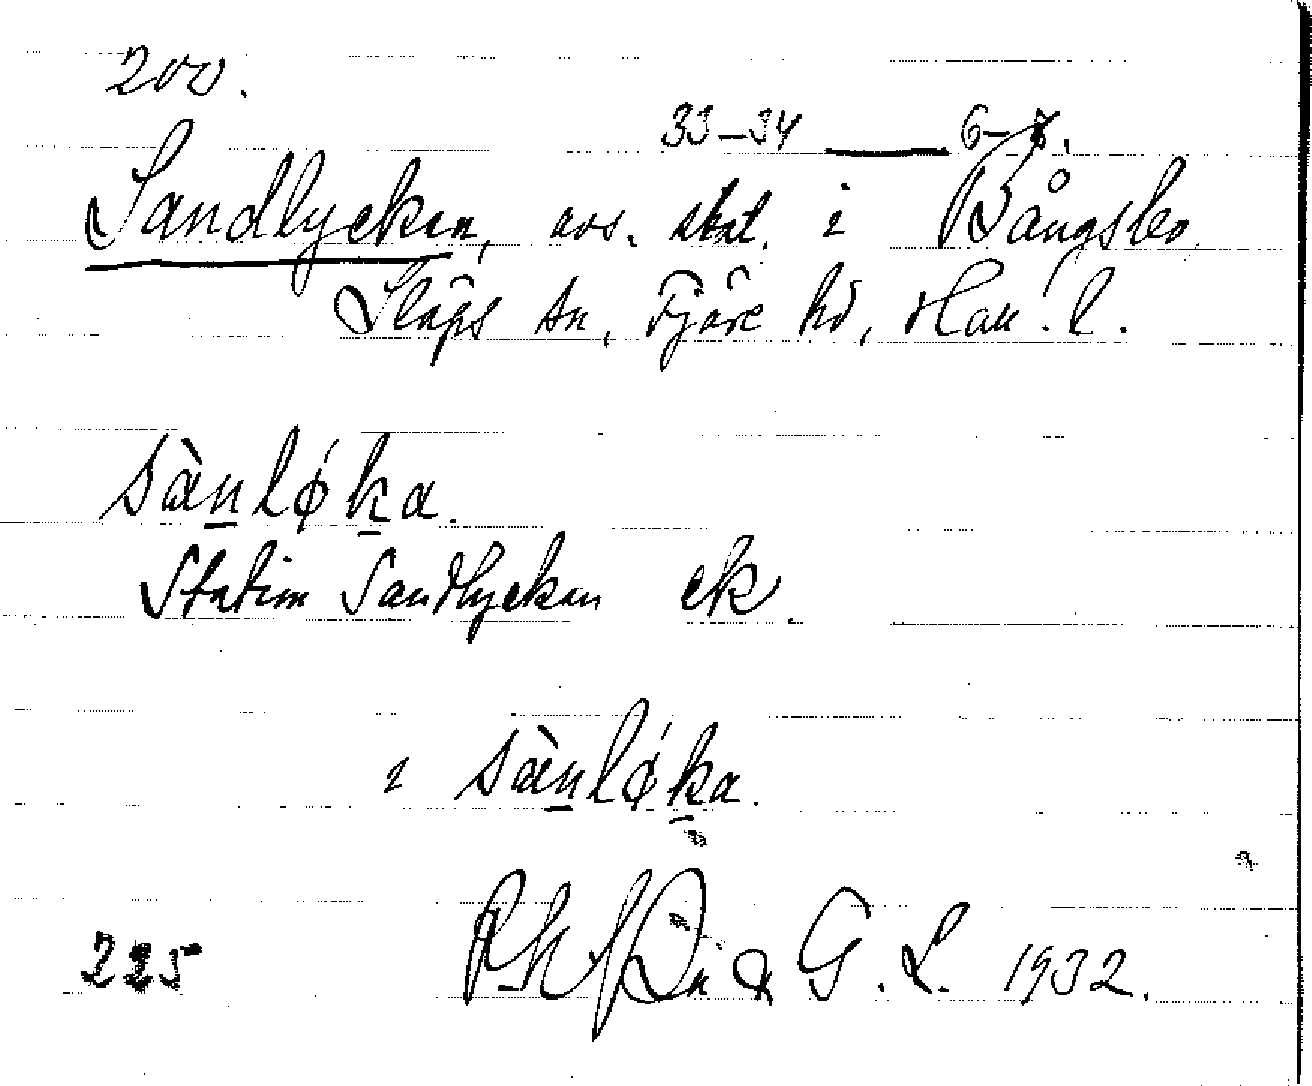 200.
33–34 — 6–7.
Sandlycken, avs. skat. i Bångsbo
Släps sn, Fjäre hd, Hall. l.
sànlø̀ka.
Station Sandlycken ek.
i sànlø̀ka.
G. L. 1932.
225